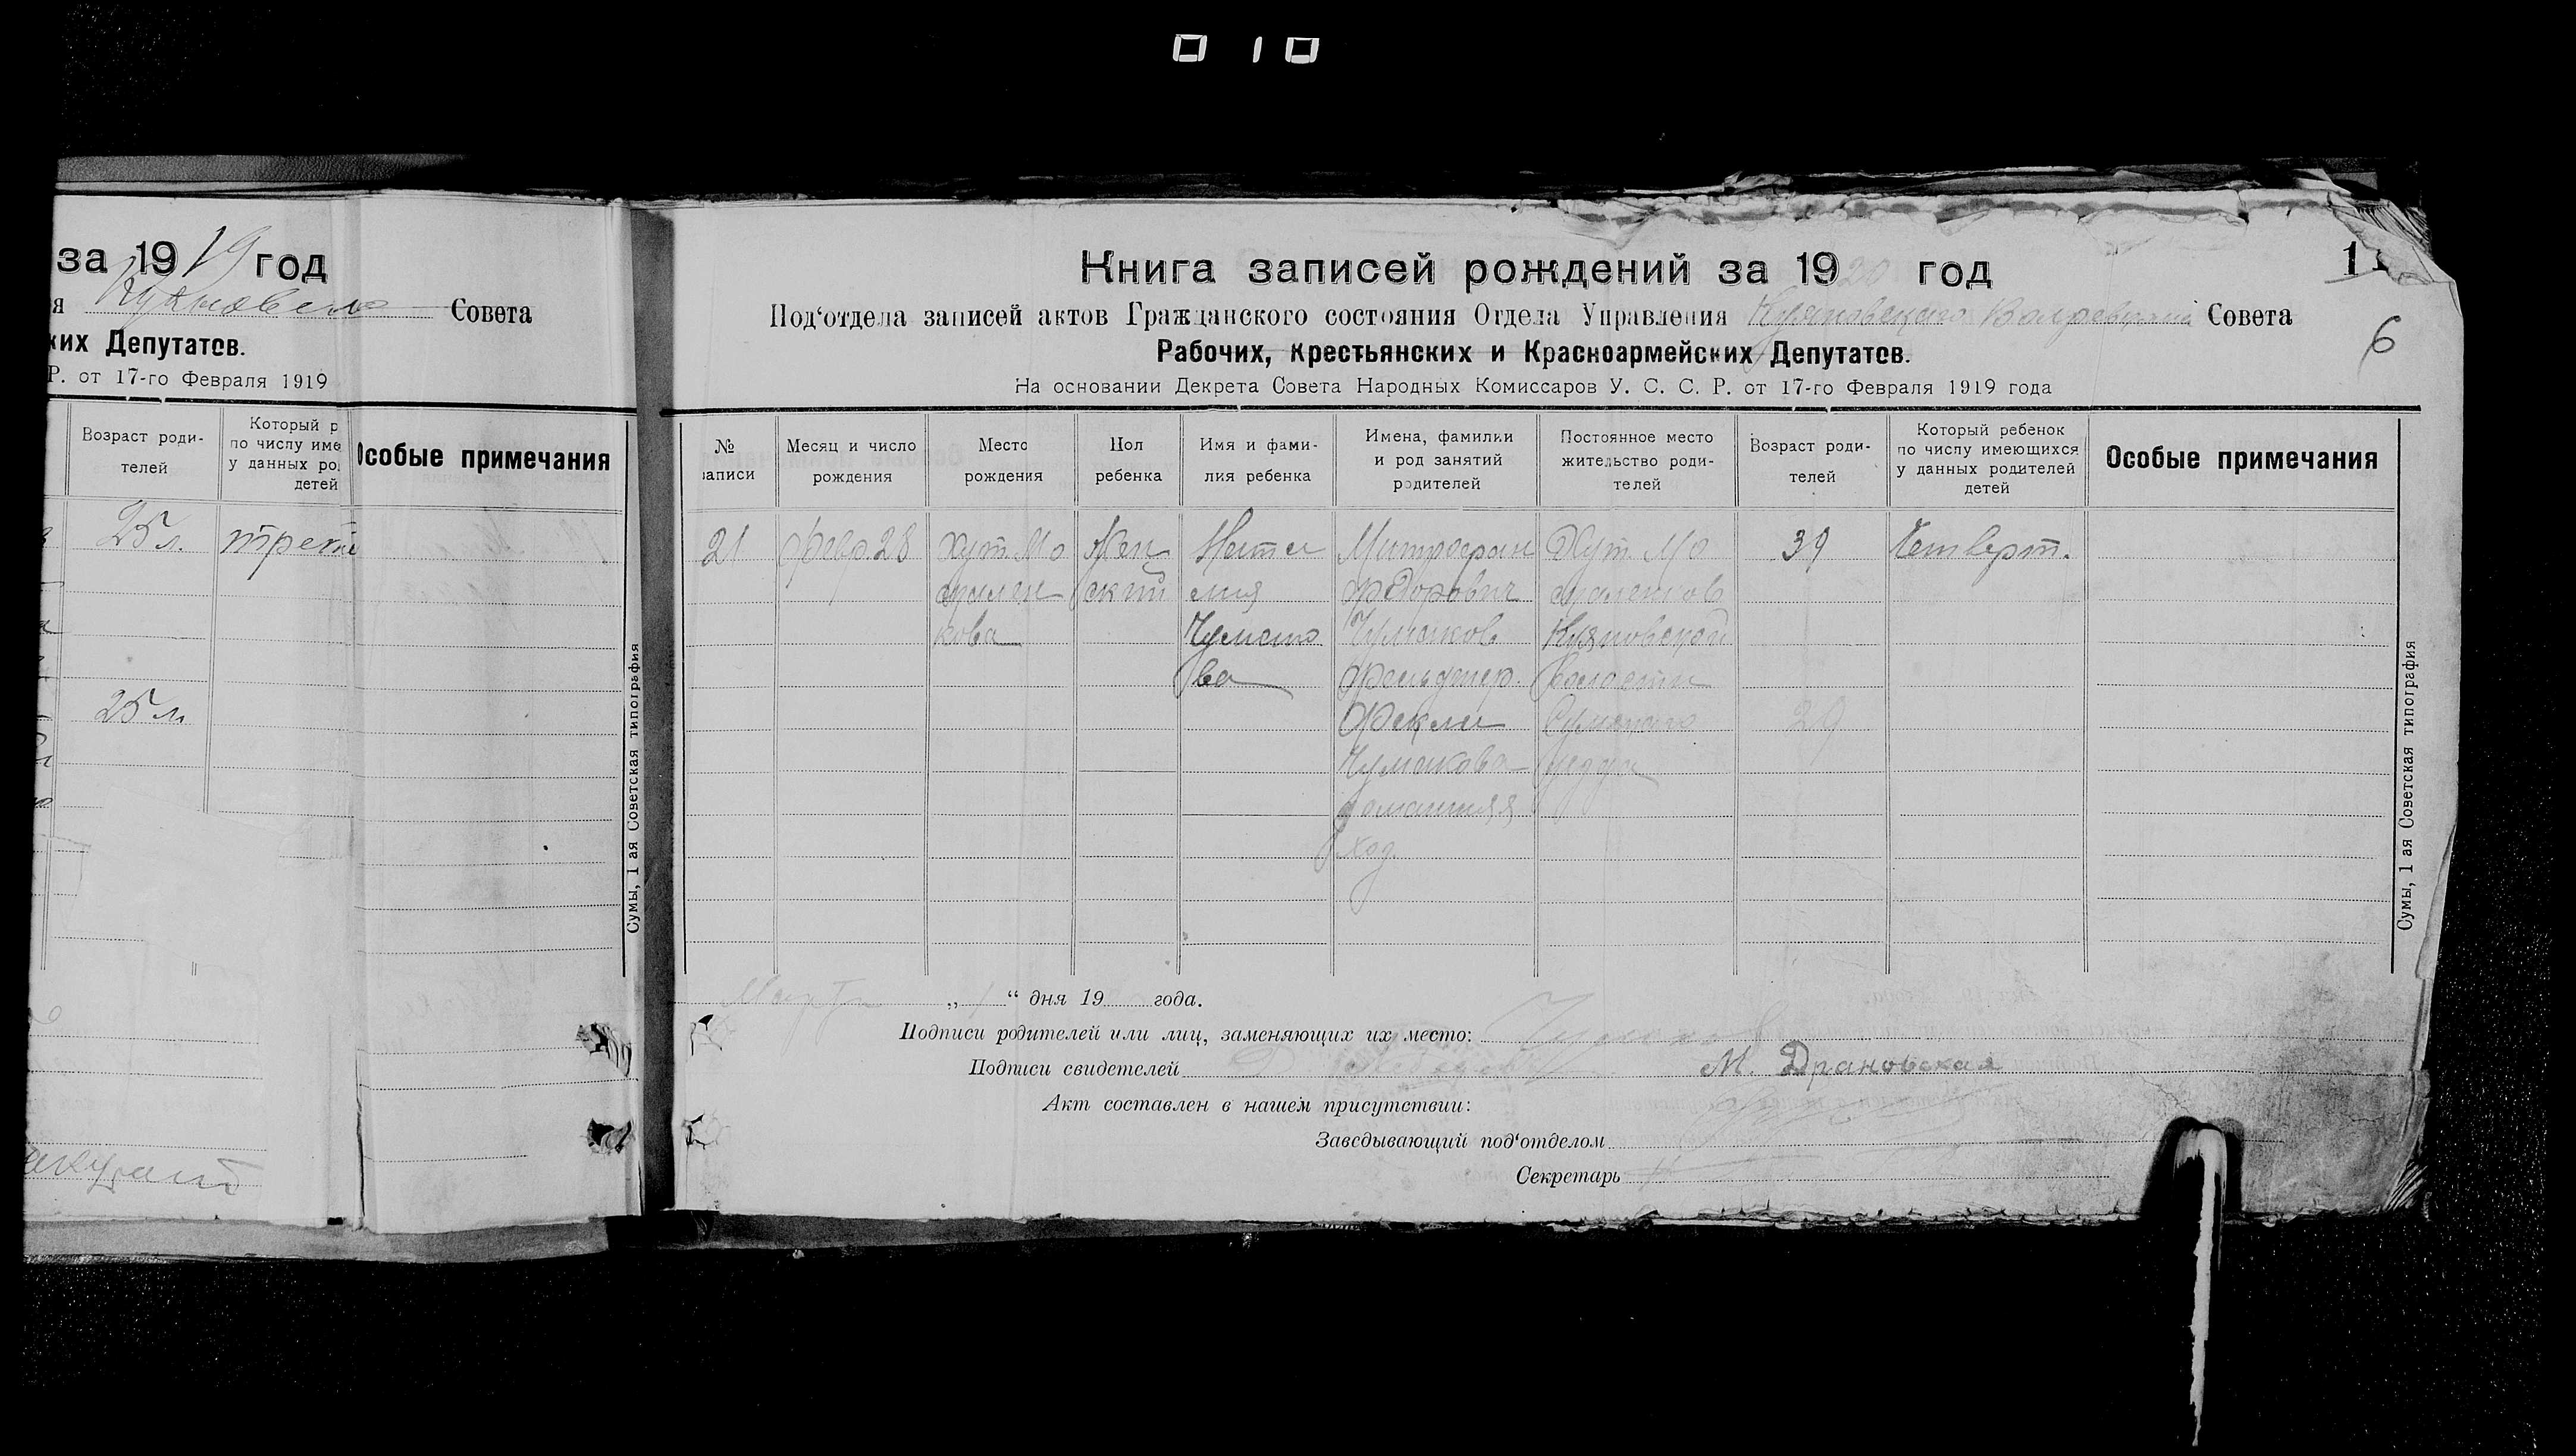 010
за 1919 год
я Куяновского Совета
ких Депутатов.
Р. от 17-го Февраля 1919
Возраст роди-
телей
Который р
по числу име
у данных ро
детей
Особые примечания
25 л.
трети
25 л.
Сумы, 1 ая Советская типография
Книга записей рождений за 1920 год
1
Под‘отдела записей актов Гражданского состояния Отдела Управления Куяновского Волревкома Совета
6
Рабочих, крестьянских и Красноармейских Депутатов.
На основании Декрета Совета Народных Комиссаров У. С. С. Р. от 17-го Февраля 1919 года
№
записи
Месяц и число
рождения
Место
рождения
Пол
ребенка
Имя и фами-
лия ребенка
Имена, фамилии
и род занятий
родителей
Постоянное место
жительство роди-
телей
Возраст роди-
телей
Который ребенок
по числу имеющихся
у данных родителей
детей
Особые примечания
21
Февр. 28
Хут. Мо
кова
Жен
ский
Ната
лия
Чумако
ва
Митрофан
Фёдорович
Чумаков
фельдшер.
Фекла
Чумакова
домашняя
хоз.
Хут. Мо
Куяновской
волости
Сумского
уезда
39
29
Четверт.
Сумы, 1 ая Советская типография
Марта „ 1 “ дня 19 года.
Подписи родителей или лиц, заменяющих их место: Чумаков
Подписи свидетелей М. Драновская
Акт составлен в нашем присутствии:
Заведывающий под‘отделом
Секретарь